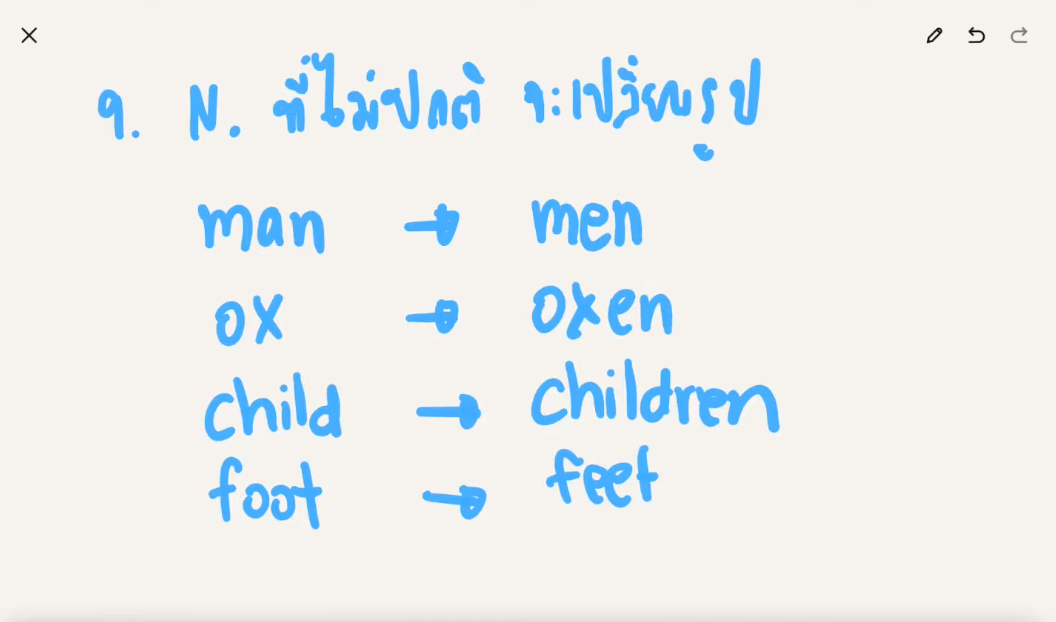 9. N. ที่ไม่ปกติ จะเปลี่ยนรูป
man → men
ox → oxen
child → children
foot → feet